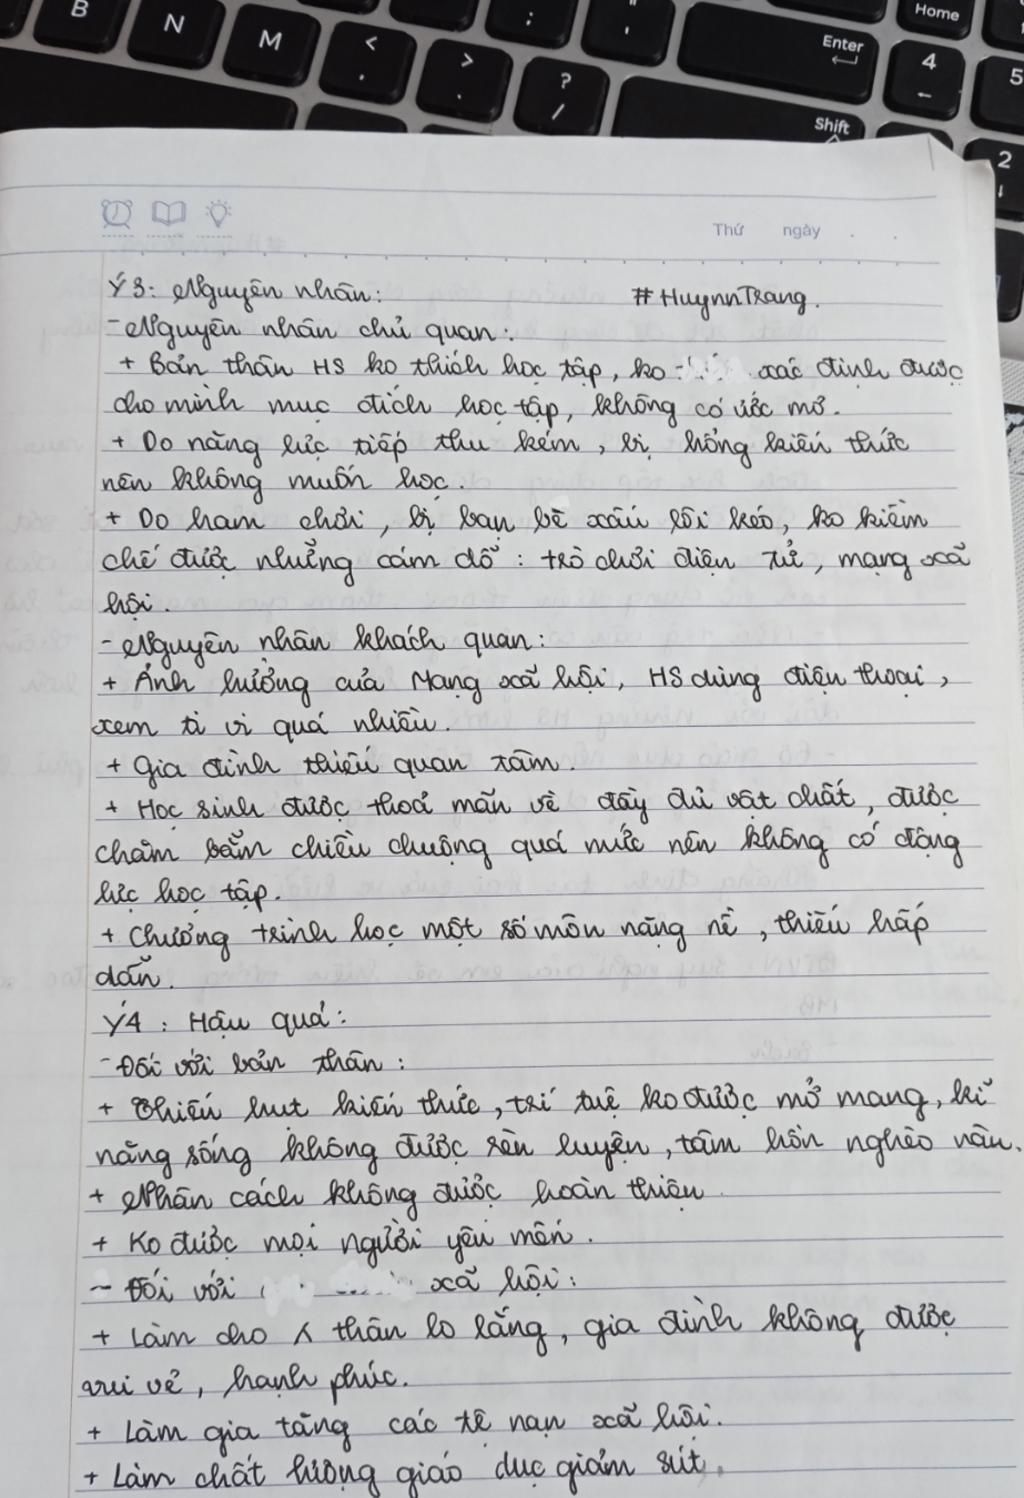 B N M < , > . ? / : ; " ' Enter Shift Home 4 5 2
Thứ ngày . .
Ý3: Nguyên nhân: #HuynnTrang.
- Nguyên nhân chủ quan:
+ Bản thân HS ko thích học tập, ko xác định được
cho mình mục đích học tập, không có ước mơ.
+ Do năng lực tiếp thu kém, bị hổng kiến thức
nên không muốn học.
+ Do ham chơi, bị bạn bè xấu lôi kéo, ko kiềm
chế được những cám dỗ: trò chơi điện tử, mạng xã
hội.
- Nguyên nhân khách quan:
+ Ảnh hưởng của Mạng xã hội, HS dùng điện thoại,
xem ti vi quá nhiều.
+ Gia đình thiếu quan tâm.
+ Học sinh được thoả mãn về đầy đủ vật chất, được
chăm bẵm chiều chuộng quá mức nên không có động
lực học tập.
+ Chương trình học một số môn nặng nề, thiếu hấp
dẫn.
Ý4: Hậu quả:
- Đối với bản thân:
+ Thiếu hụt kiến thức, trí tuệ ko được mở mang, kĩ
năng sống không được rèn luyện, tâm hồn nghèo nàn.
+ Nhân cách không được hoàn thiện.
+ Ko được mọi người yêu mến.
- Đối với xã hội:
+ Làm cho thân lo lắng, gia đình không được
vui vẻ, hạnh phúc.
+ Làm gia tăng các tệ nạn xã hội.
+ Làm chất lượng giáo dục giảm sút.